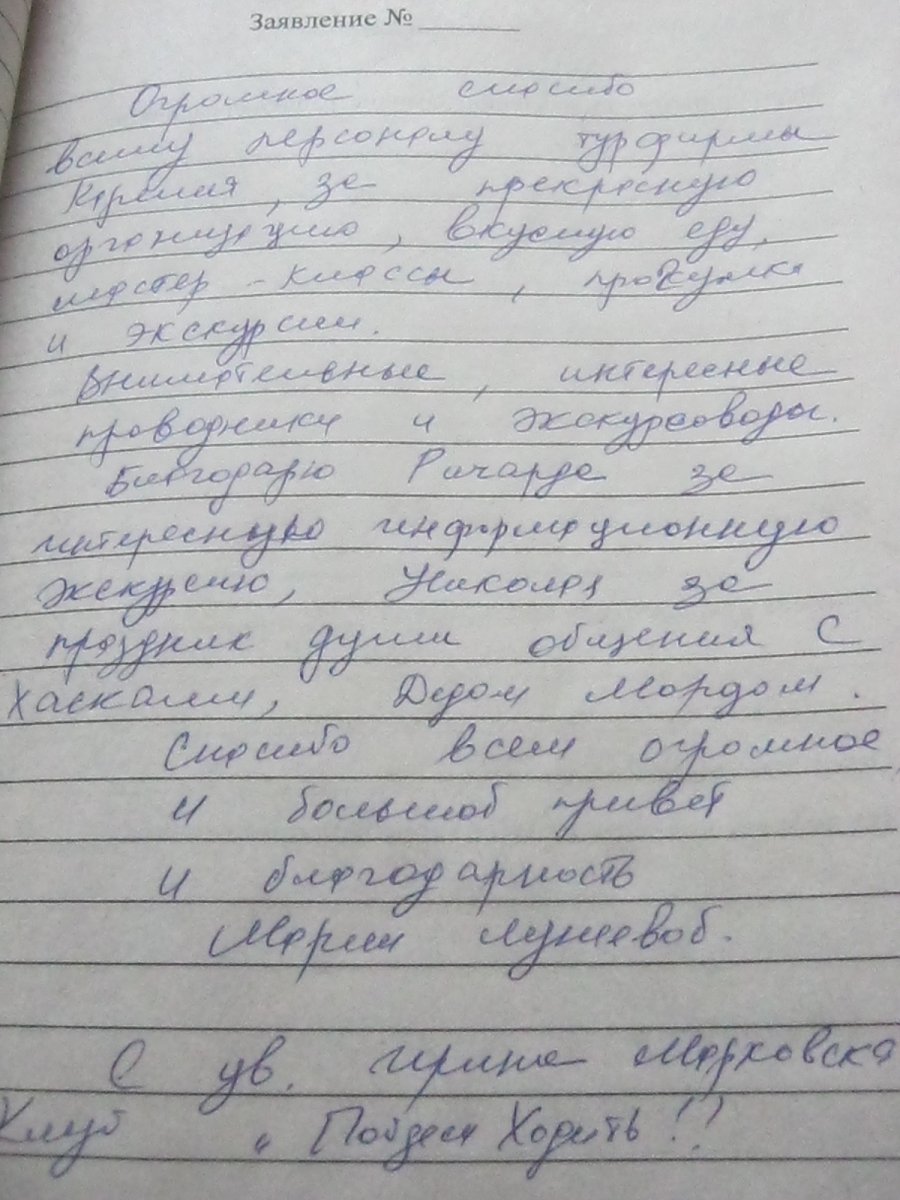 Заявление №
Огромное спасибо
всему персоналу турфирмы
Карелия, за прекрасную
организацию, вкусную еду,
мастер-классы, прогулка
и экскурсии.
Внимательные, интересные
проводники и экскурсоводы.
Благодарю Ричарда за
интересную информационную
экскурсию, Николая за
праздник души общения с
хасками, Дедом Мордом.
Спасибо всем огромное
и большой привет
и благодарность
Марии Лунёвой.
С ув. Ирина Марковска
Клуб "Пойдем Ходить!!